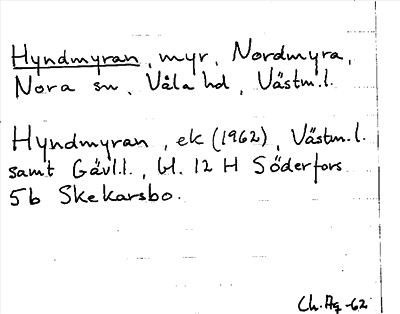 Hyndmyran, myr, Nordmyra,
Nora sn, Våla hd, Västm.l.
Hyndmyran, ek (1962), Västm.l.
samt Gävl.l., bl. 12 H Söderfors
5b Skekarsbo.
Ch. Ag -62